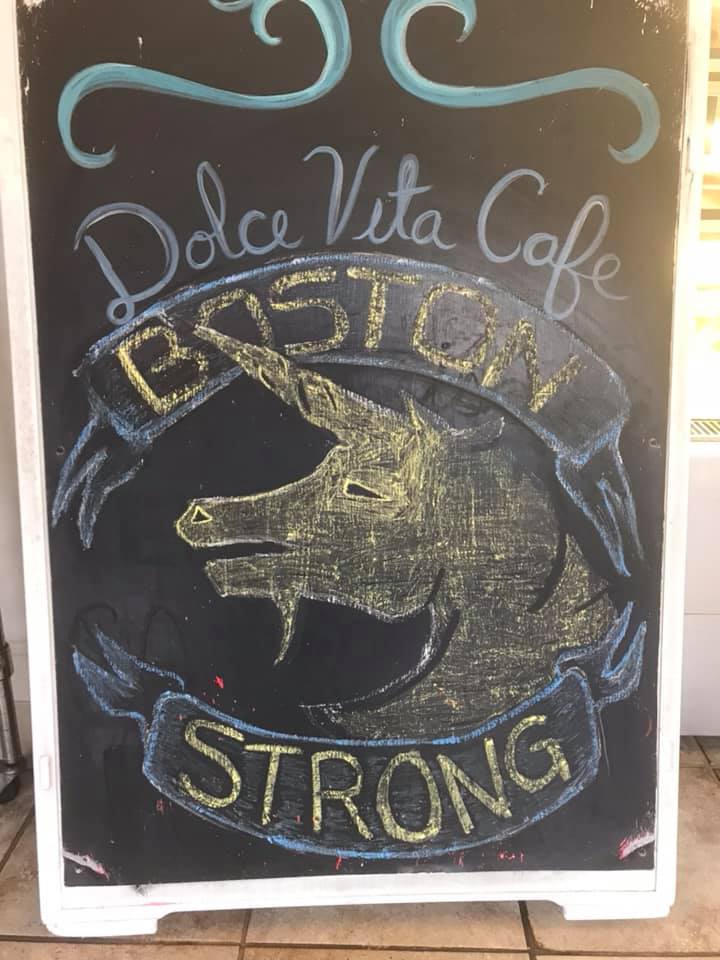 Dolce Vita Cafe
BOSTON
STRONG